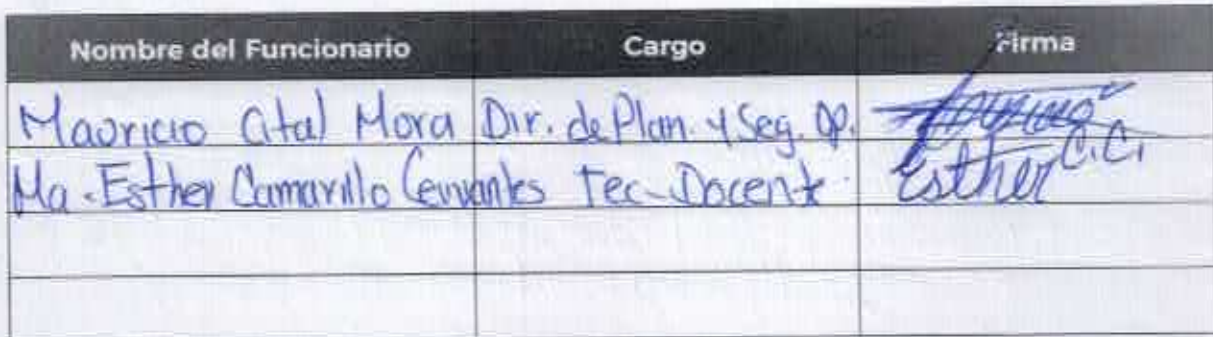 Nombre del Funcionario Cargo Firma
Mauricio Cital Mora Dir. de Plan. y Seg. Op.
Ma. Esther Camarillo Cervantes Tec-Docente Esther C.C.